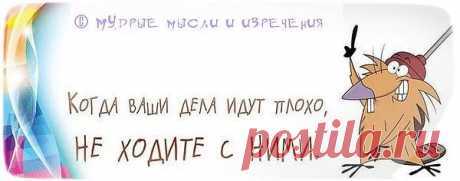 © мудрые мысли и изречения
Когда ваши дела идут плохо,
не ходите с ними.
postila.ru